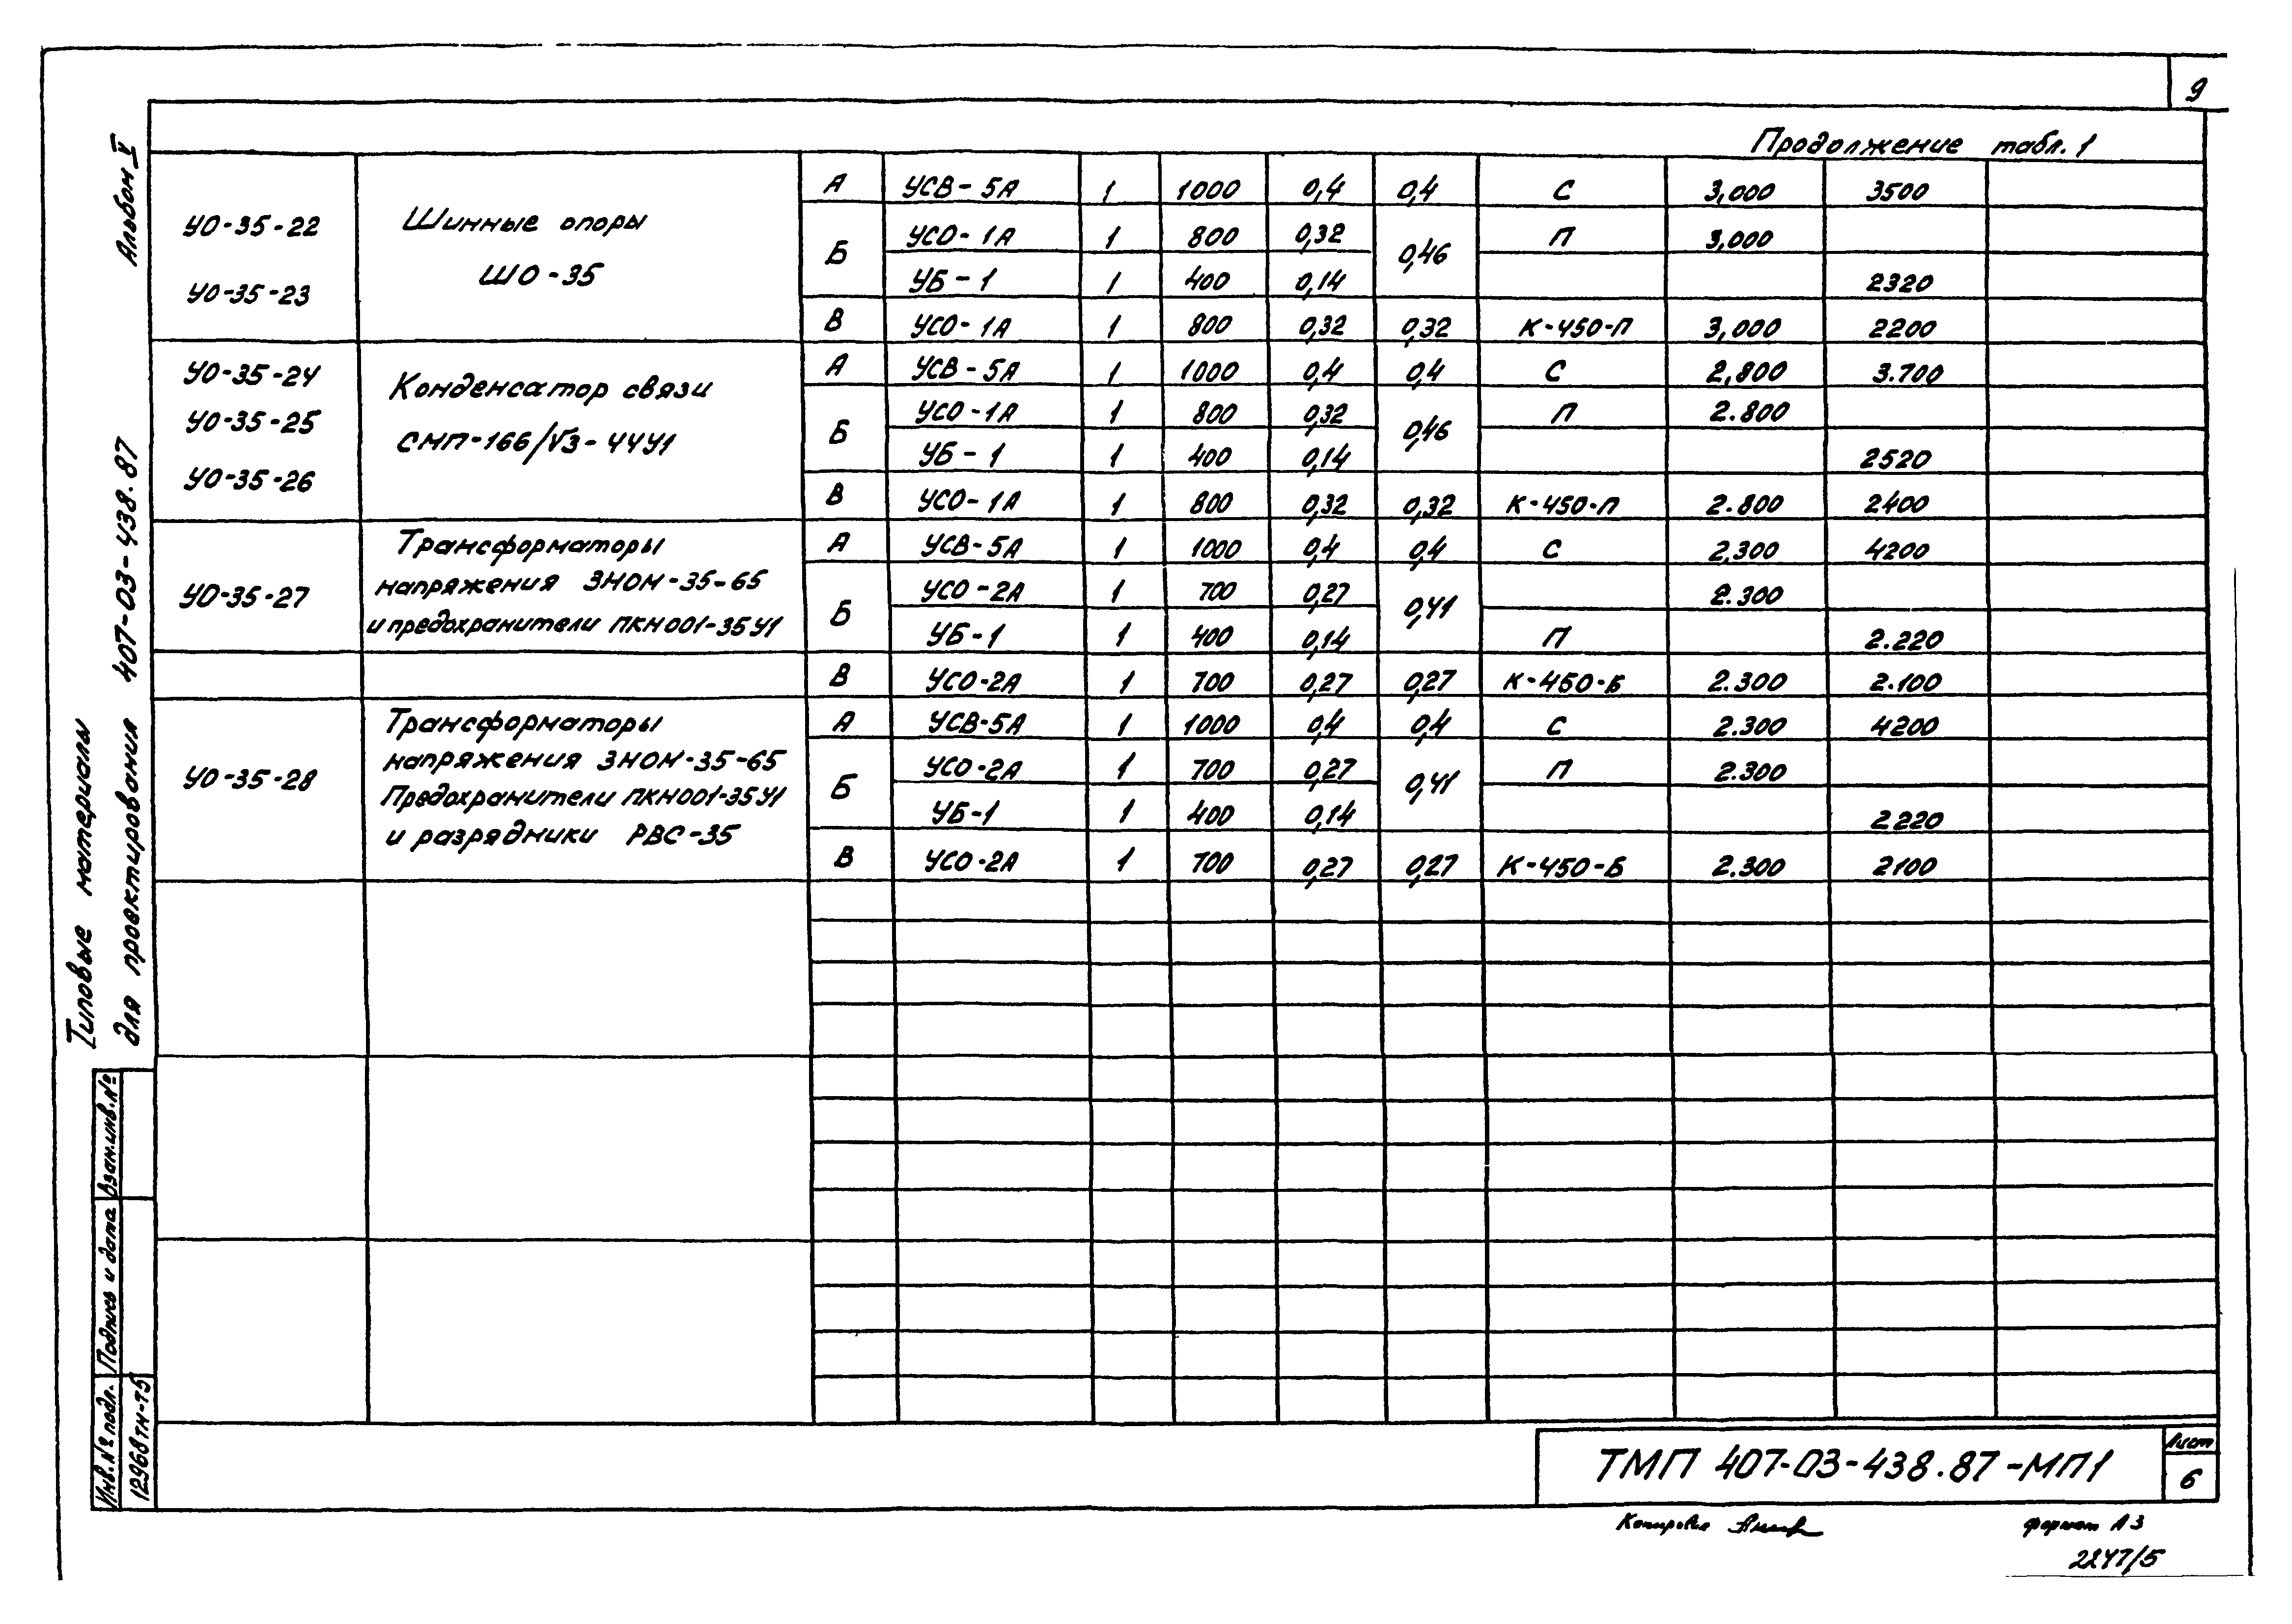 9
Продолжение табл. 1
Альбом V
Типовые материалы
для проектирования 407-03-438.87
УО-35-22
УО-35-23
Шинные опоры
ШО-35
А УСВ-5А 1 1000 0,4 0,4 С 3,000 3500
Б УСО-1А 1 800 0,32 0,46 П 3,000
УБ-1 1 400 0,14 2320
В УСО-1А 1 800 0,32 0,32 К-450-П 3,000 2200
УО-35-24
УО-35-25
УО-35-26
Конденсатор связи
СМП-166/√3-44У1
А УСВ-5А 1 1000 0,4 0,4 С 2,800 3.700
Б УСО-1А 1 800 0,32 0,46 П 2.800
УБ-1 1 400 0,14 2520
В УСО-1А 1 800 0,32 0,32 К-450-П 2.800 2400
УО-35-27
Трансформаторы
напряжения ЗНОМ-35-65
и предохранители ПКН001-35У1
А УСВ-5А 1 1000 0,4 0,4 С 2,300 4200
Б УСО-2А 1 700 0,27 0,41 2.300
УБ-1 1 400 0,14 П 2.220
В УСО-2А 1 700 0,27 0,27 К-450-Б 2.300 2.100
УО-35-28
Трансформаторы
напряжения ЗНОМ-35-65
Предохранители ПКН001-35У1
и разрядники РВС-35
А УСВ-5А 1 1000 0,4 0,4 С 2.300 4200
Б УСО-2А 1 700 0,27 0,41 П 2.300
УБ-1 1 400 0,14 2220
В УСО-2А 1 700 0,27 0,27 К-450-Б 2.300 2100
Взам.инв.№
Подпись и дата
Инв.№ подл.
12968тм-т5
ТМП 407-03-438.87-МП1
Лист
6
Копировал
формат А3
2247/5